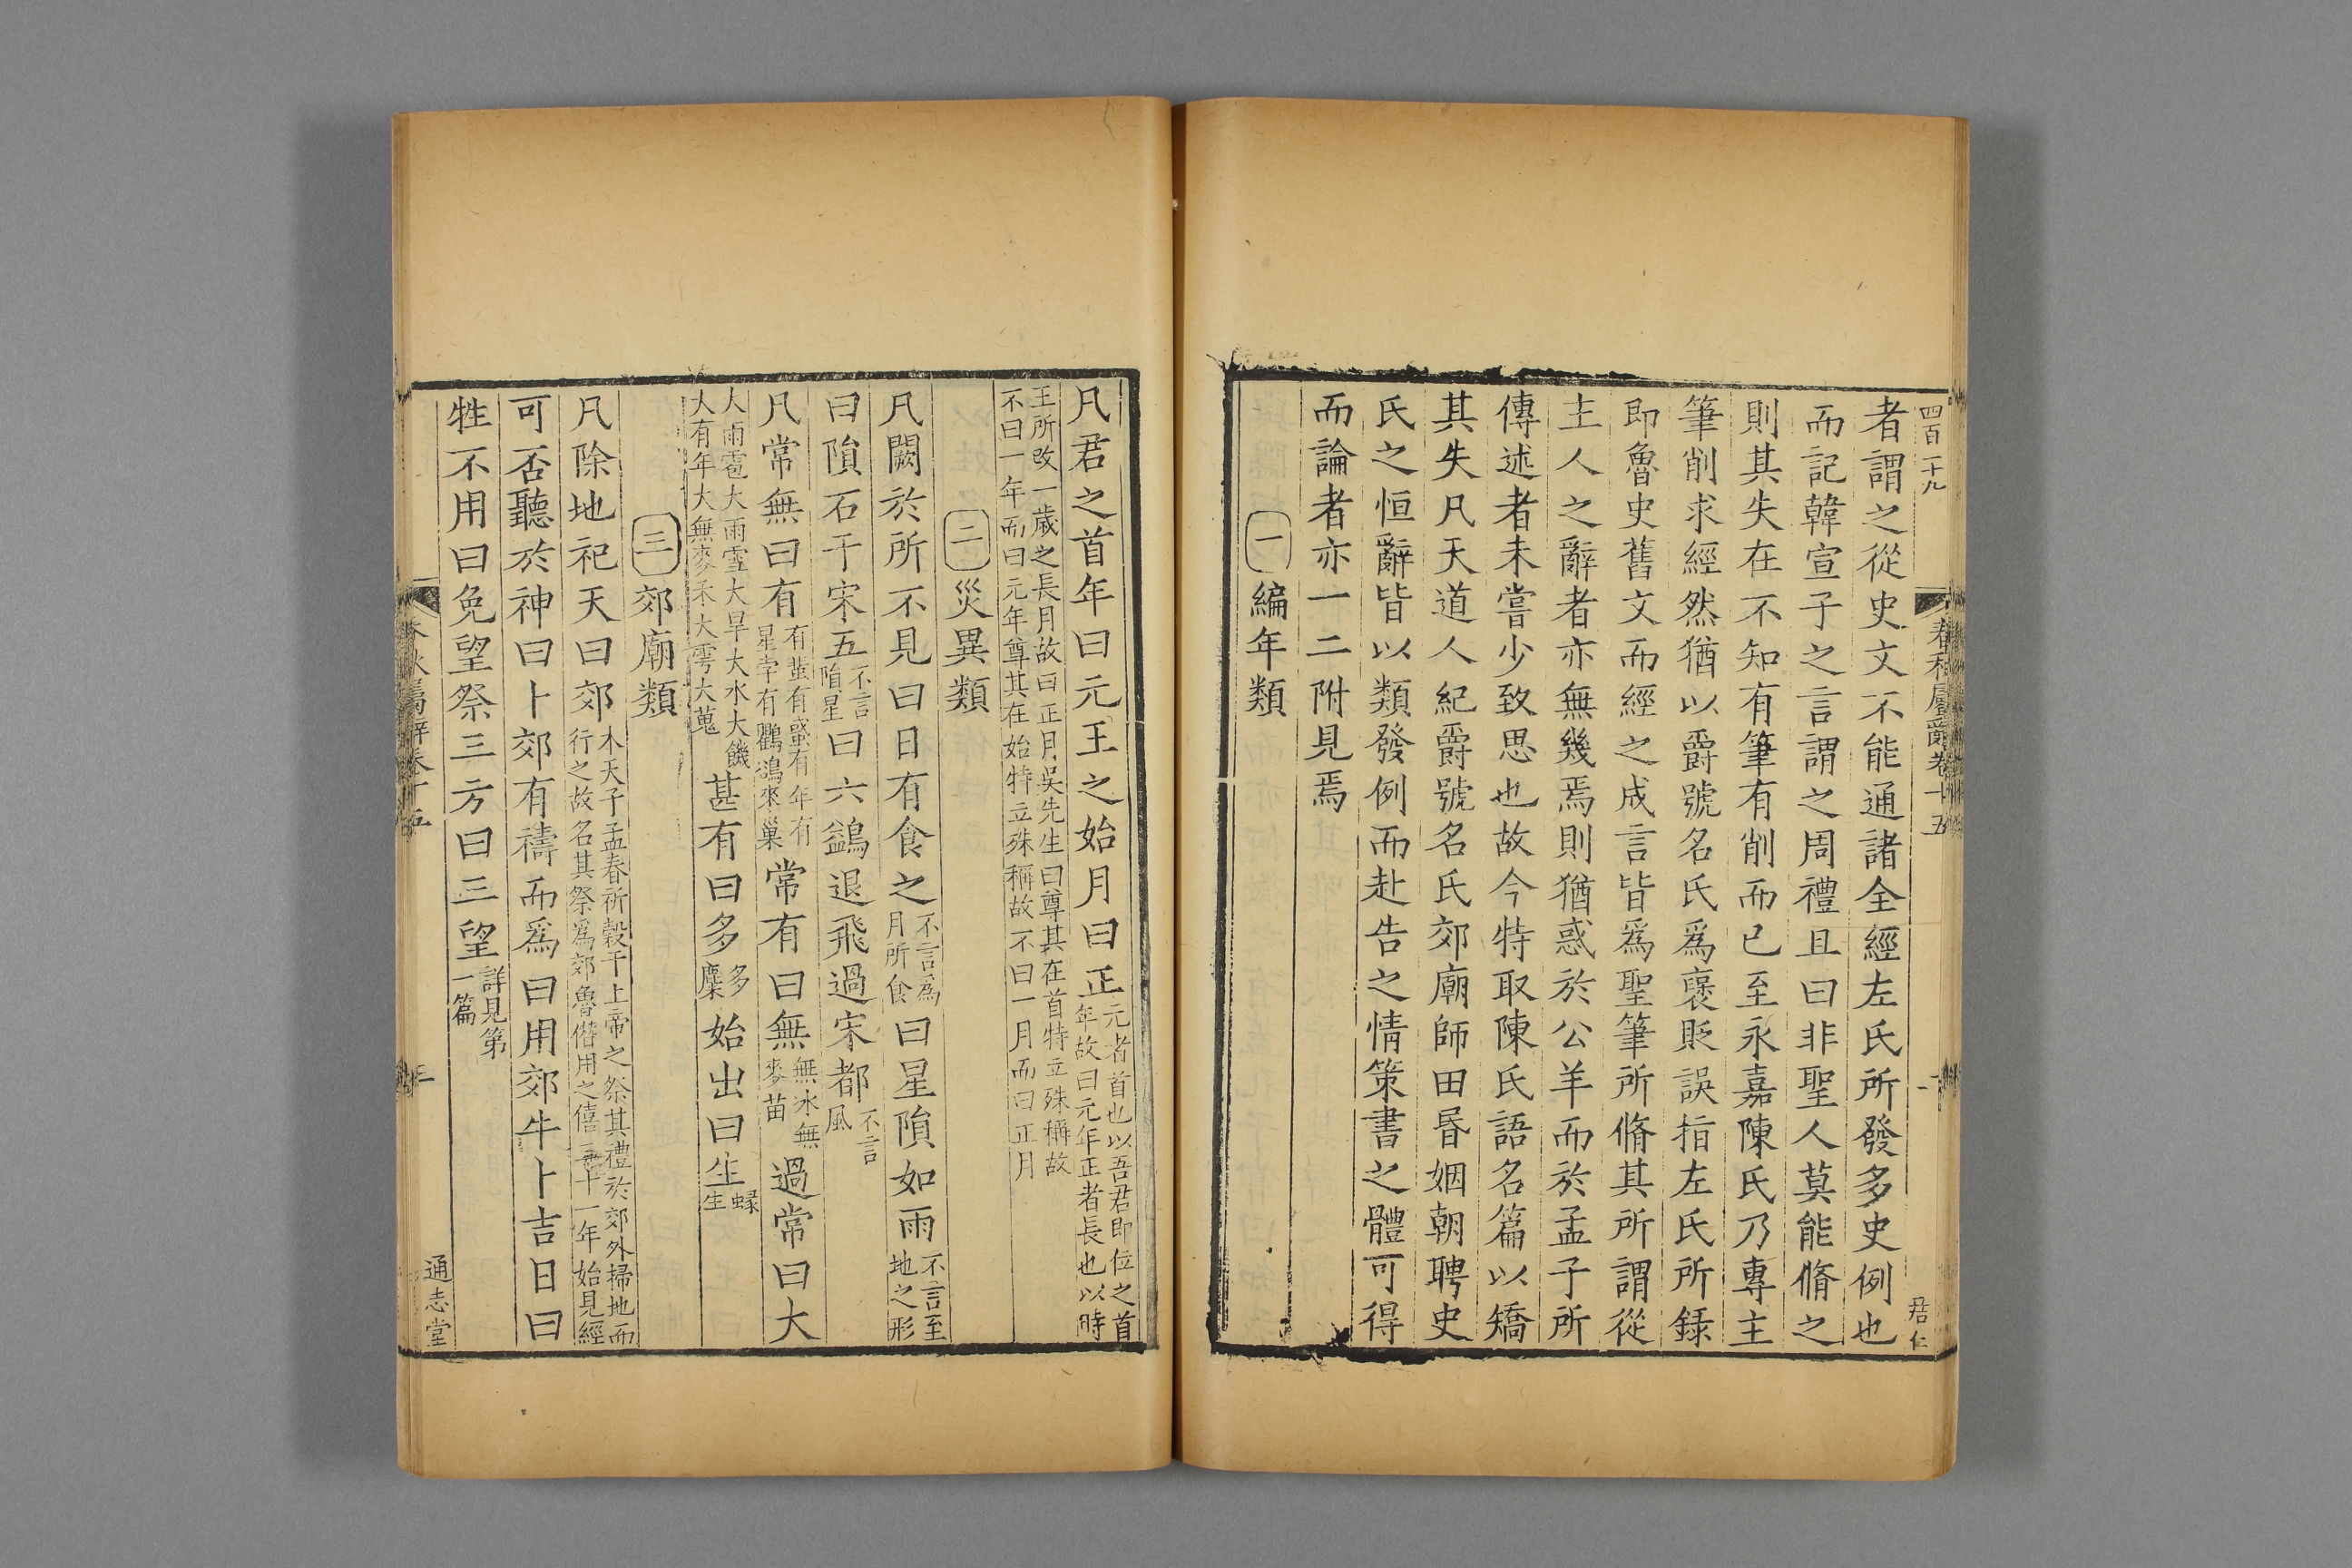 四百二十九
春秋屬辭卷十五
二
君仁
者謂之從史文不能通諸全經左氏所發多史例也
而記韓宣子之言謂之周禮且曰非聖人莫能脩之
則其失在不知有筆有削而已至永嘉陳氏乃專主
筆削求經然猶以爵號名氏爲襃貶誤指左氏所録
即魯史舊文而經之成言皆爲聖筆所脩其所謂從
主人之辭者亦無幾焉則猶惑於公羊而於孟子所
傳述者未嘗少致思也故今特取陳氏語名篇以矯
其失凡天道人紀爵號名氏郊廟師田昬姻朝聘史
氏之恒辭皆以類發例而赴告之情策書之體可得
而論者亦一二附見焉
一編年類
凡君之首年曰元王之始月曰正元者首也以吾君即位之首
年故曰元年正者長也以時
王所改一歲之長月故曰正月吳先生曰尊其在首特立殊稱故
不曰一年而曰元年尊其在始特立殊稱故不曰一月而曰正月
二災異類
凡闕於所不見曰日有食之不言爲
月所食曰星隕如雨不言至
地之形
曰隕石于宋五不言
隕星曰六鷁退飛過宋都不言
風
凡常無曰有有蜚有蜮有年有
星孛有鸜鵒來巢常有曰無無冰無
麥苗過常曰大
大雨雹大雨雪大旱大水大饑
大有年大無麥禾大雩大蒐甚有曰多多
麋始出曰生蝝
生
三郊廟類
凡除地祀天曰郊本天子孟春祈穀于上帝之祭其禮於郊外掃地而
行之故名其祭爲郊魯僭用之僖三十一年始見經
可否聽於神曰卜郊有禱而爲曰用郊牛卜吉日曰
牲不用曰免望祭三方曰三望詳見第
一篇
春秋屬辭卷十五
三
通志堂